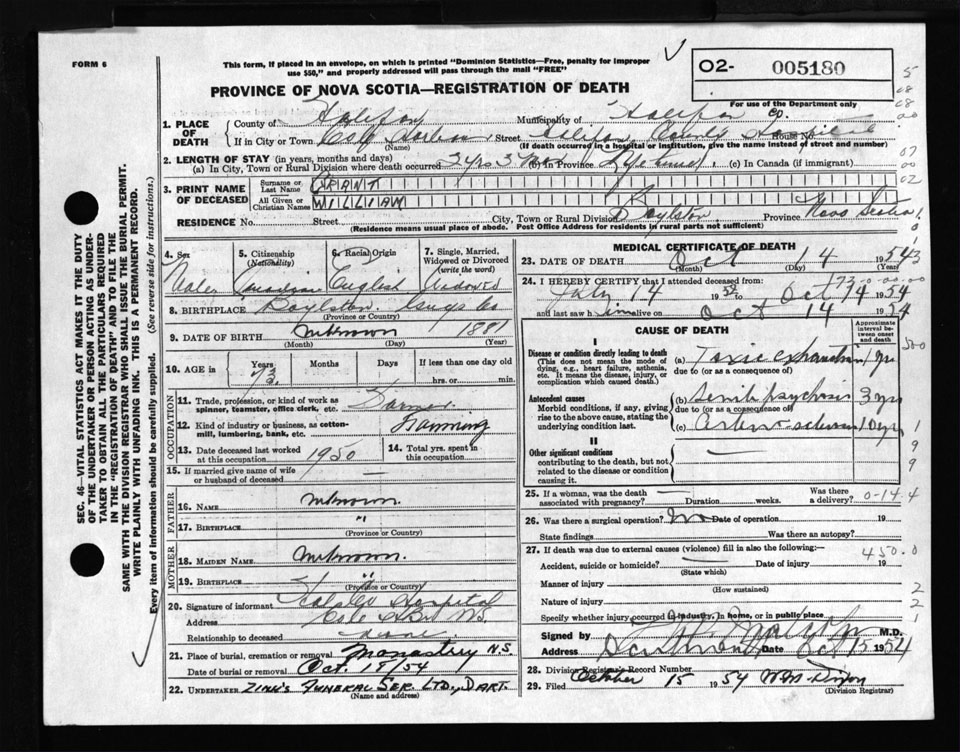 FORM 6
This form, if placed in an envelope, on which is printed "Dominion Statistics—Free, penalty for improper
use $50," and properly addressed will pass through the mail "FREE"
O2- 005180
For use of the Department only
PROVINCE OF NOVA SCOTIA—REGISTRATION OF DEATH
1. PLACE OF DEATH
County of Halifax Municipality of Halifax Co.
If in City or Town Street Halifax County House No.
(Name) (If death occurred in a hospital or institution, give the name instead of street and number)
2. LENGTH OF STAY (in years, months and days)
(a) In City, Town or Rural Division where death occurred 2 yrs 3 Mo (b) In Province Life time (c) In Canada (if immigrant)
3. PRINT NAME OF DECEASED
Surname or Last Name GRANT
All Given or Christian Names WILLIAM
RESIDENCE No. Street City, Town or Rural Division Boylston Province Nova Scotia
(Residence means usual place of abode. Post Office Address for residents in rural parts not sufficient)
4. Sex Male
5. Citizenship (Nationality) Canadian
6. Racial Origin English
7. Single, Married, Widowed or Divorced (write the word) Widowed
8. BIRTHPLACE Boylston Guys Co
(Province or Country)
9. DATE OF BIRTH Unknown 1881
(Month) (Day) (Year)
10. AGE in Years 73 Months Days If less than one day old hrs. or min.
OCCUPATION
11. Trade, profession, or kind of work as spinner, teamster, office clerk, etc. Farmer
12. Kind of industry or business, as cotton-mill, lumbering, bank, etc. Farming
13. Date deceased last worked at this occupation 1950
14. Total yrs. spent in this occupation
15. If married give name of wife or husband of deceased —
FATHER
16. NAME Unknown
17. BIRTHPLACE "
(Province or Country)
MOTHER
18. MAIDEN NAME Unknown.
19. BIRTHPLACE "
(Province or Country)
20. Signature of informant Hospital
Address N.S.
Relationship to deceased none
21. Place of burial, cremation or removal Monastery N.S.
Date of burial or removal Oct. 18/54
22. UNDERTAKER ZINK'S FUNERAL SER. LTD., DART.
(Name and address)
MEDICAL CERTIFICATE OF DEATH
23. DATE OF DEATH Oct 14 1954
(Month) (Day) (Year)
24. I HEREBY CERTIFY that I attended deceased from:
July 14 1952 to Oct 14 1954
and last saw him alive on Oct 14 1954
CAUSE OF DEATH
Approximate interval between onset and death
I
Disease or condition directly leading to death
(This does not mean the mode of dying, e.g., heart failure, asthenia, etc. It means the disease, injury, or complication which caused death.)
(a) Toxic exhaustion 1 yr
due to (or as a consequence of)
Antecedent causes
Morbid conditions, if any, giving rise to the above cause, stating the underlying condition last.
(b) Senile psychosis 3 yrs
due to (or as a consequence of)
(c) Arterio-sclerosis 10 yrs
II
Other significant conditions
contributing to the death, but not related to the disease or condition causing it. —
25. If a woman, was the death associated with pregnancy? — Duration weeks. Was there a delivery? 0-14.4
26. Was there a surgical operation? No Date of operation 19
State findings Was there an autopsy?
27. If death was due to external causes (violence) fill in also the following:— 450.0
Accident, suicide or homicide? Date of injury 19
(State which)
Manner of injury
(How sustained)
Nature of injury
Specify whether injury occurred in industry, in home, or in public place
Signed by M.D.
Address Dartmouth Date Oct 15 1954
28. Division Registrar's Record Number
29. Filed October 15 1954 Dixon
(Division Registrar)
SEC. 46—VITAL STATISTICS ACT MAKES IT THE DUTY
OF THE UNDERTAKER OR PERSON ACTING AS UNDER-
TAKER TO OBTAIN ALL THE PARTICULARS REQUIRED
IN THE "REGISTRATION OF DEATH" AND TO FILE THE
SAME WITH THE DIVISION REGISTRAR WHO SHALL ISSUE THE BURIAL PERMIT.
WRITE PLAINLY WITH UNFADING INK. THIS IS A PERMANENT RECORD.
Every item of information should be carefully supplied. (See reverse side for instructions.)